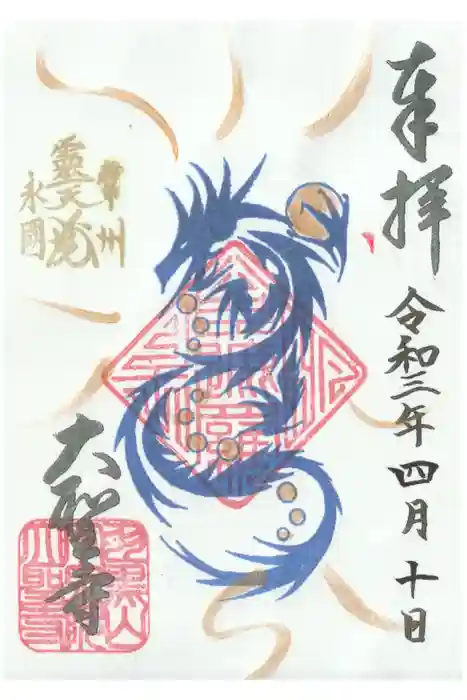 奉拝
令和三年四月十日
常州
永國
大聖寺